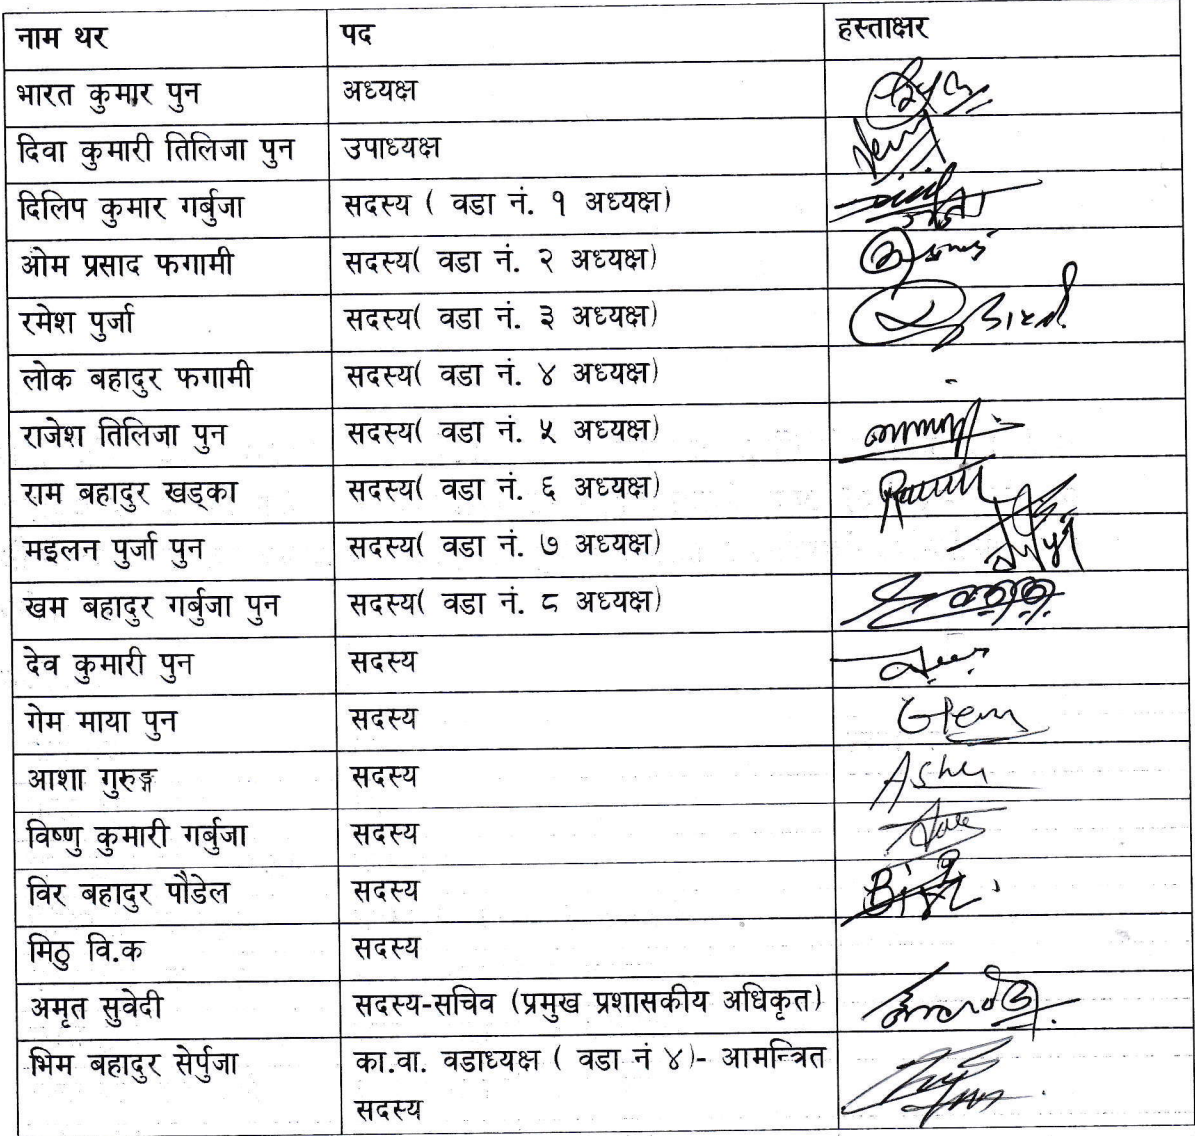 नाम थर पद हस्ताक्षर
भारत कुमार पुन अध्यक्ष
दिवा कुमारी तिलिजा पुन उपाध्यक्ष
दिलिप कुमार गर्बुजा सदस्य ( वडा नं. १ अध्यक्ष)
ओम प्रसाद फगामी सदस्य( वडा नं. २ अध्यक्ष)
रमेश पुर्जा सदस्य( वडा नं. ३ अध्यक्ष)
लोक बहादुर फगामी सदस्य( वडा नं. ४ अध्यक्ष) -
राजेश तिलिजा पुन सदस्य( वडा नं. ५ अध्यक्ष)
राम बहादुर खड्का सदस्य( वडा नं. ६ अध्यक्ष)
मइलन पुर्जा पुन सदस्य( वडा नं. ७ अध्यक्ष)
खम बहादुर गर्बुजा पुन सदस्य( वडा नं. ८ अध्यक्ष)
देव कुमारी पुन सदस्य
गेम माया पुन सदस्य Gem
आशा गुरुङ्ग सदस्य Asha
विष्णु कुमारी गर्बुजा सदस्य
विर बहादुर पौडेल सदस्य
मिठु वि.क सदस्य
अमृत सुवेदी सदस्य-सचिव (प्रमुख प्रशासकीय अधिकृत)
भिम बहादुर सेर्पुजा का.वा. वडाध्यक्ष ( वडा नं ४)- आमन्त्रित
सदस्य